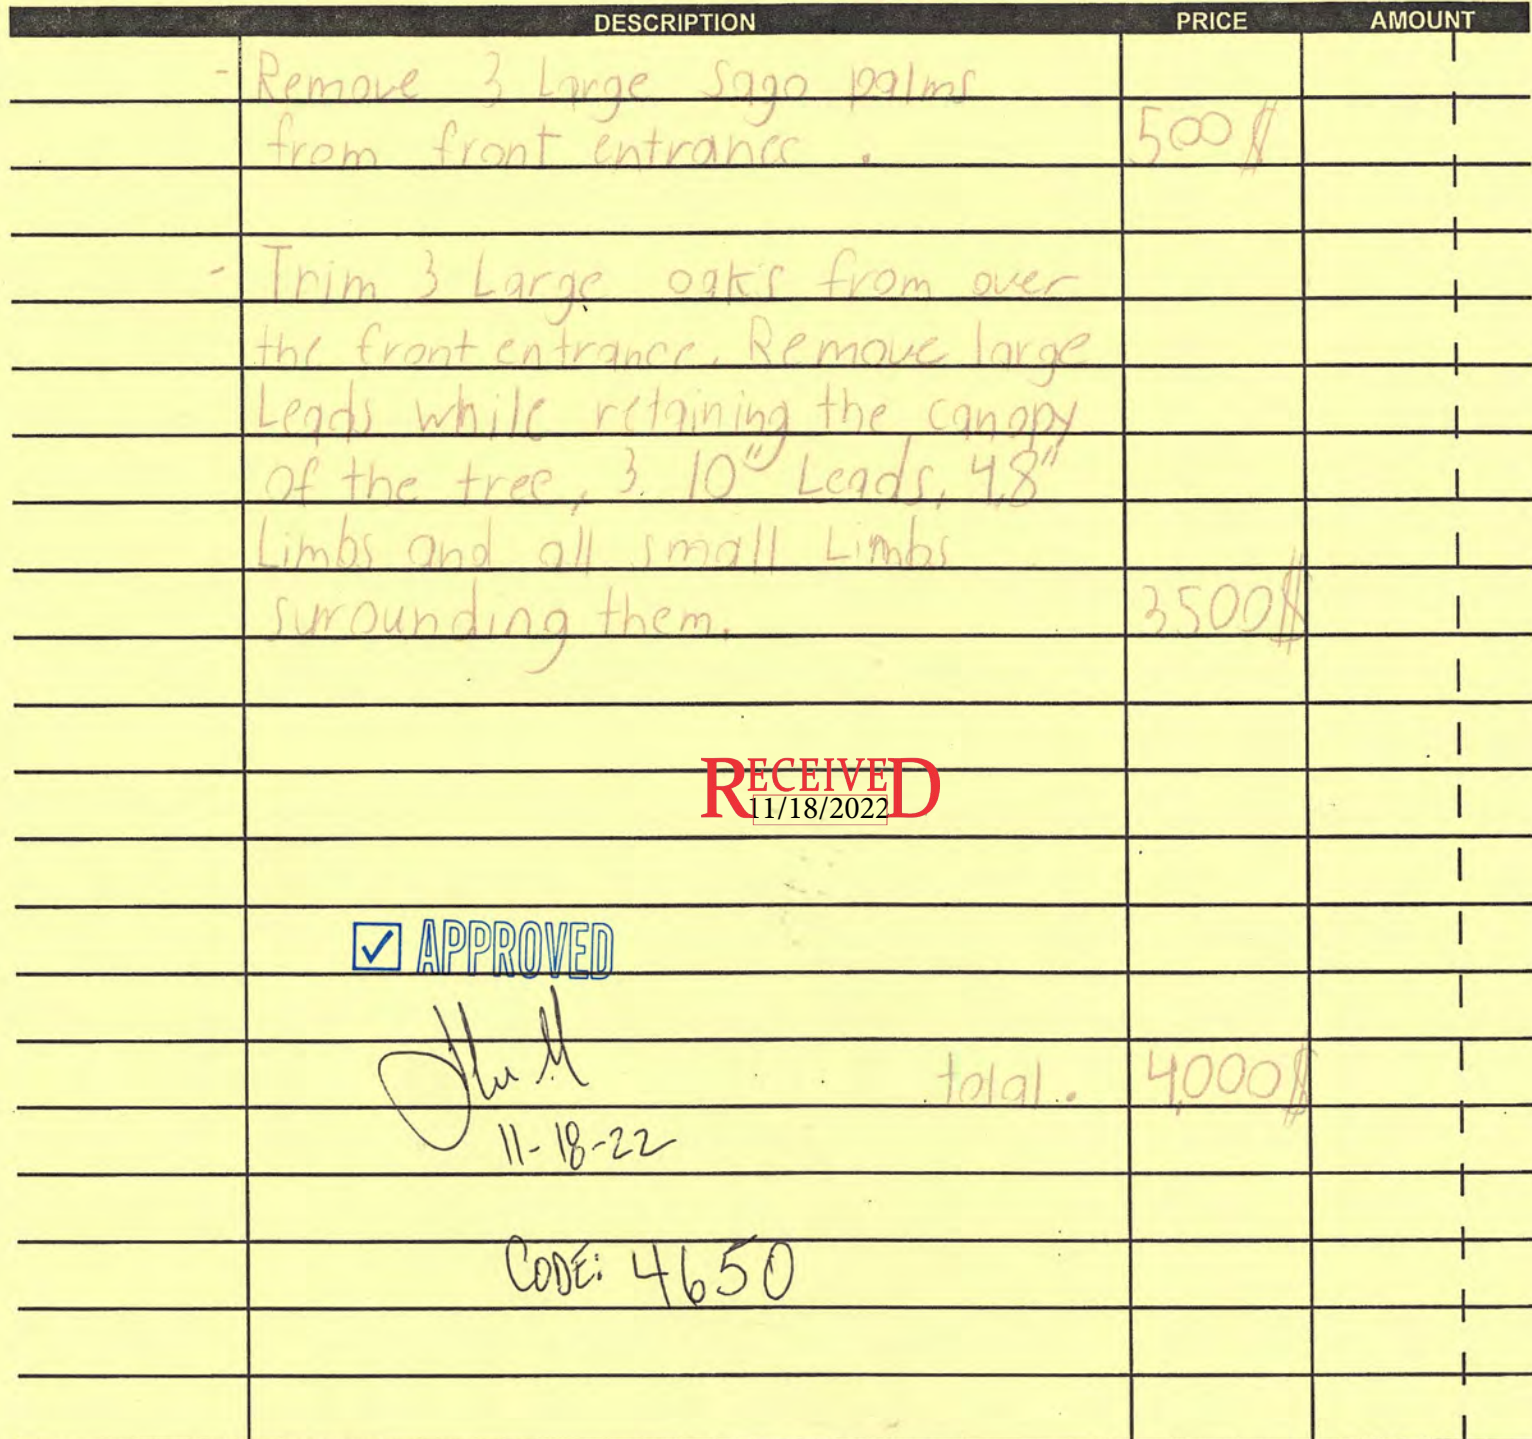 DESCRIPTION PRICE AMOUNT
- Remove 3 Large Sago palms
from front entrance. 500$
- Trim 3 Large oak's from over
the front entrance. Remove large
Leads while retaining the canopy
of the tree, 3. 10" Leads, 4,8"
Limbs and all small Limbs
surounding them. 3500$
RECEIVED
11/18/2022
APPROVED
11-18-22
total. 4,000$
CODE: 4650